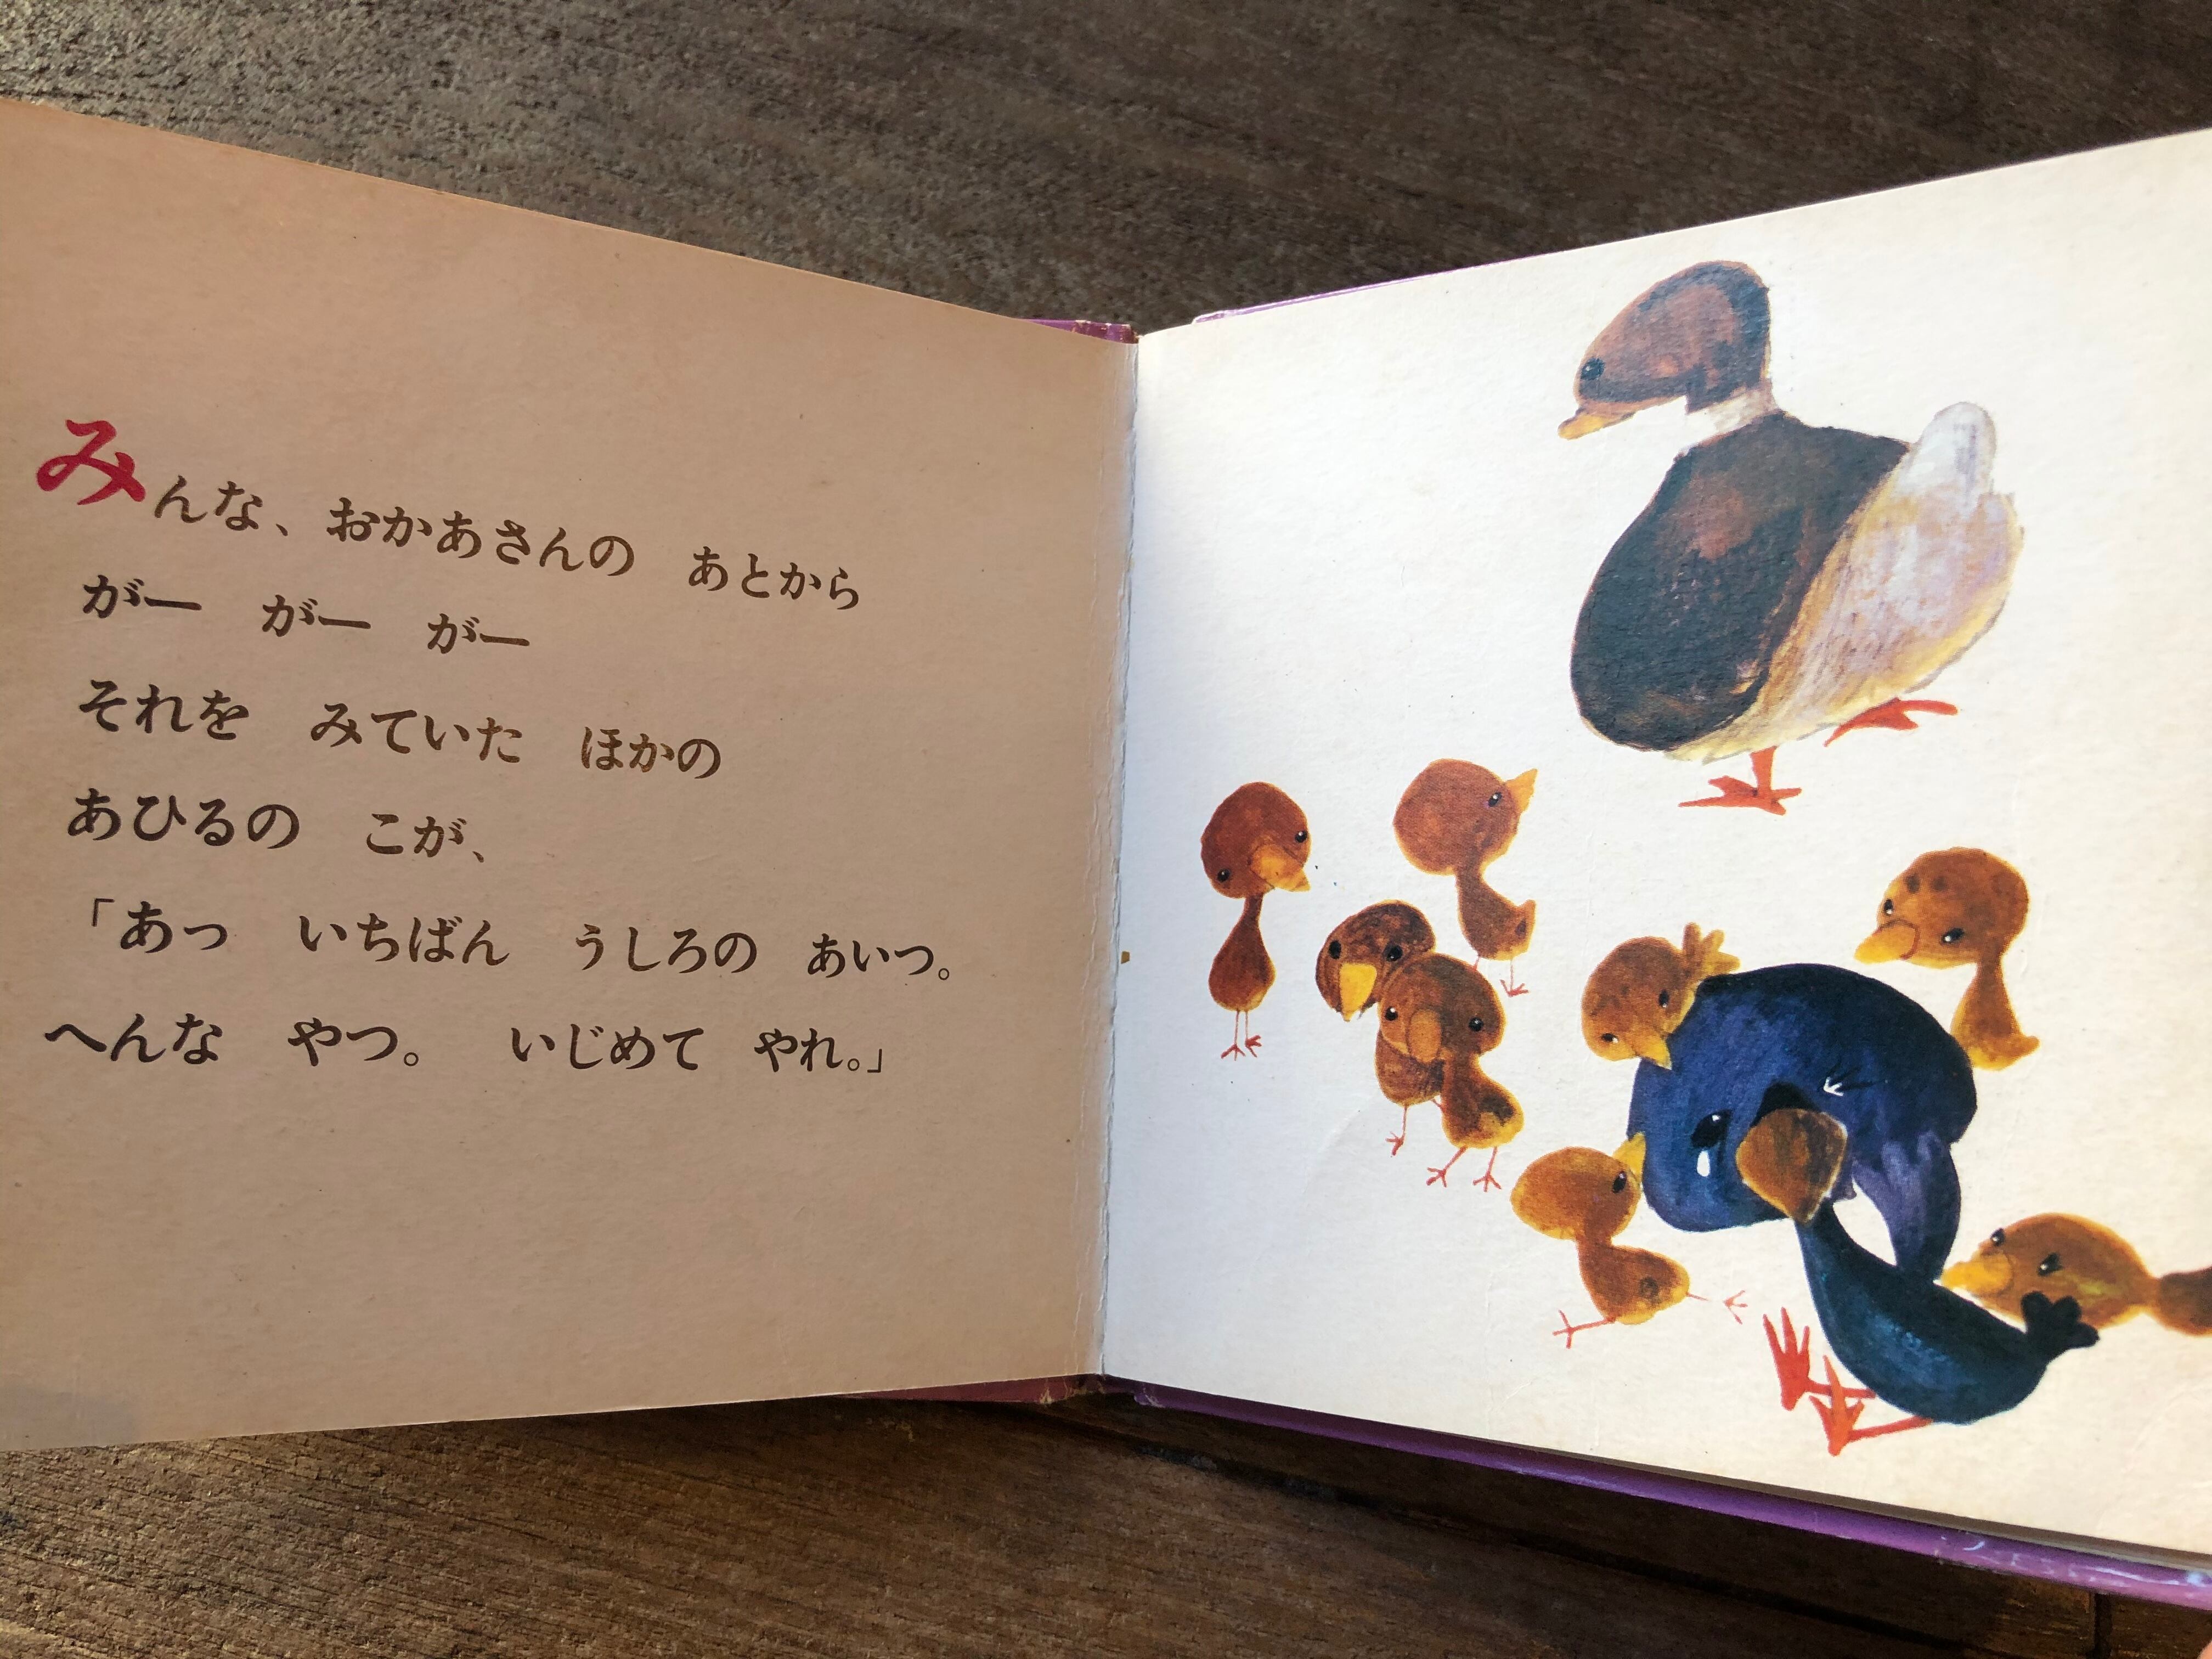 みんな、おかあさんの　あとから
がー　がー　がー
それを　みていた　ほかの
あひるの　こが、
「あっ　いちばん　うしろの　あいつ。
へんな　やつ。　いじめて　やれ。」